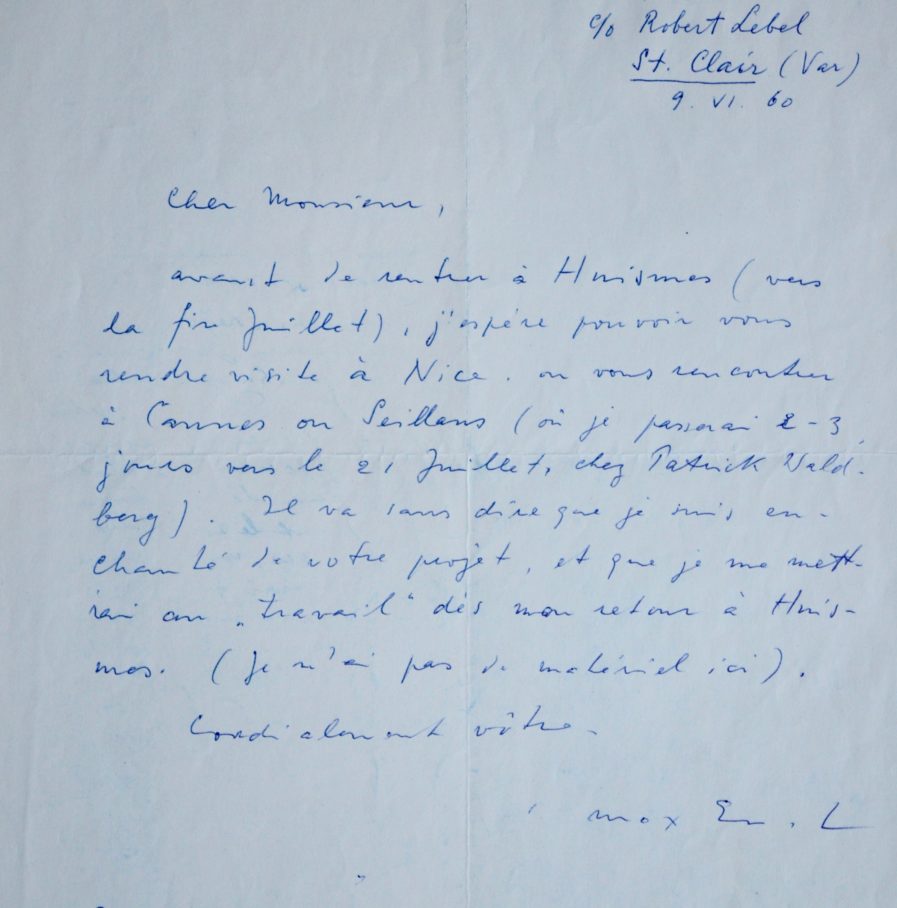 c/o Robert Lebel
St. Clair (Var)
9. VI. 60
Cher Monsieur,
avant de rentrer à Huismes (vers
la fin Juillet), j'espère pouvoir vous
rendre visite à Nice. ou vous rencontrer
à Cannes ou Seillans (où je passerai 2-3
jours vers le 21 Juillet, chez Patrick Wald-
berg). Il va sans dire que je suis en-
chanté de votre projet, et que je me mett-
rai au „travail“ dès mon retour à Huis-
mes. (Je n'ai pas de matériel ici).
Cordialement vôtre.
max Ernst